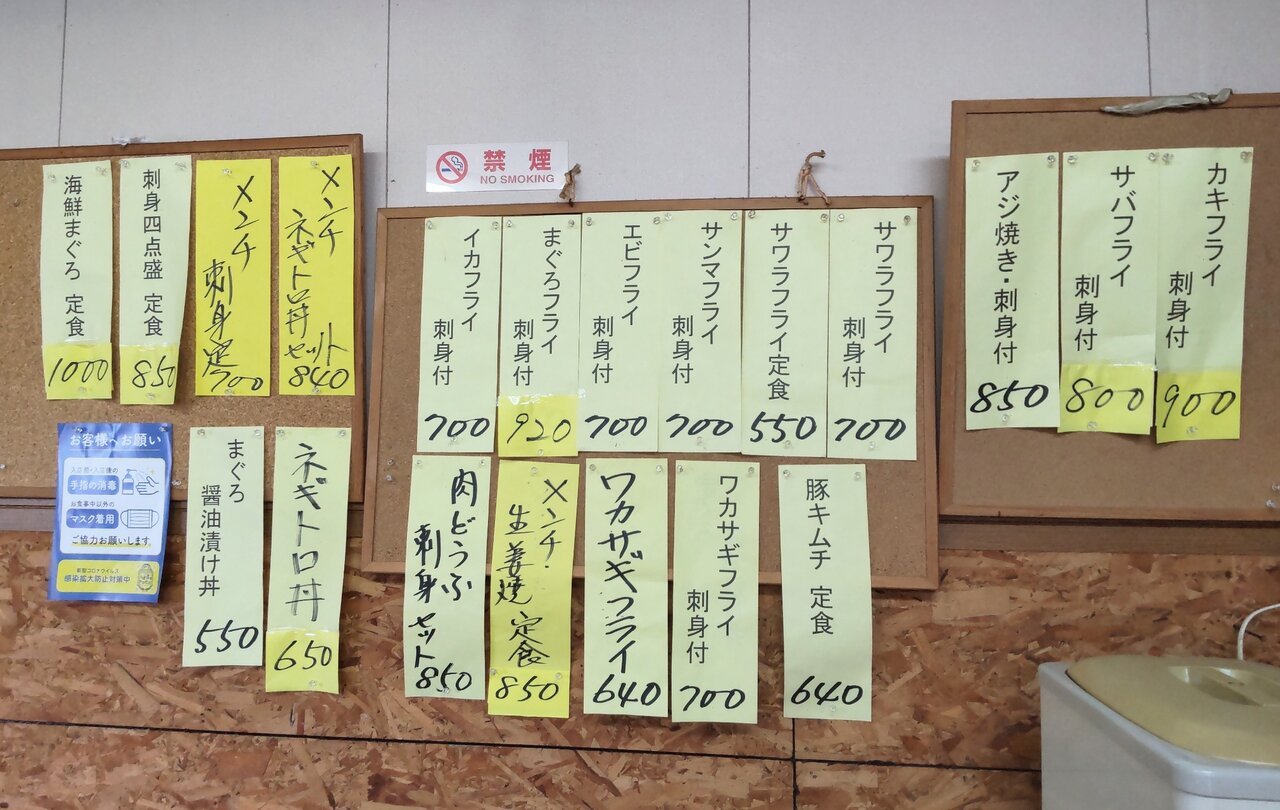 海鮮まぐろ 定食
1000
刺身四点盛 定食
850
メンチ
刺身定
700
メンチ
ネギトロ丼
セット
840
お客様へお願い
入店前・入店後の
手指の消毒
お食事中以外の
マスク着用
ご協力お願いします
新型コロナウイルス
感染拡大防止対策中
まぐろ
醤油漬け丼
550
ネギトロ丼
650
禁煙
NO SMOKING
イカフライ
刺身付
700
まぐろフライ
刺身付
920
エビフライ
刺身付
700
サンマフライ
刺身付
700
サワラフライ定食
550
サワラフライ
刺身付
700
肉どうふ
刺身セット
850
メンチ・
生姜焼 定食
850
ワカサギフライ
640
ワカサギフライ
刺身付
700
豚キムチ 定食
640
アジ焼き・刺身付
850
サバフライ
刺身付
800
カキフライ
刺身付
900